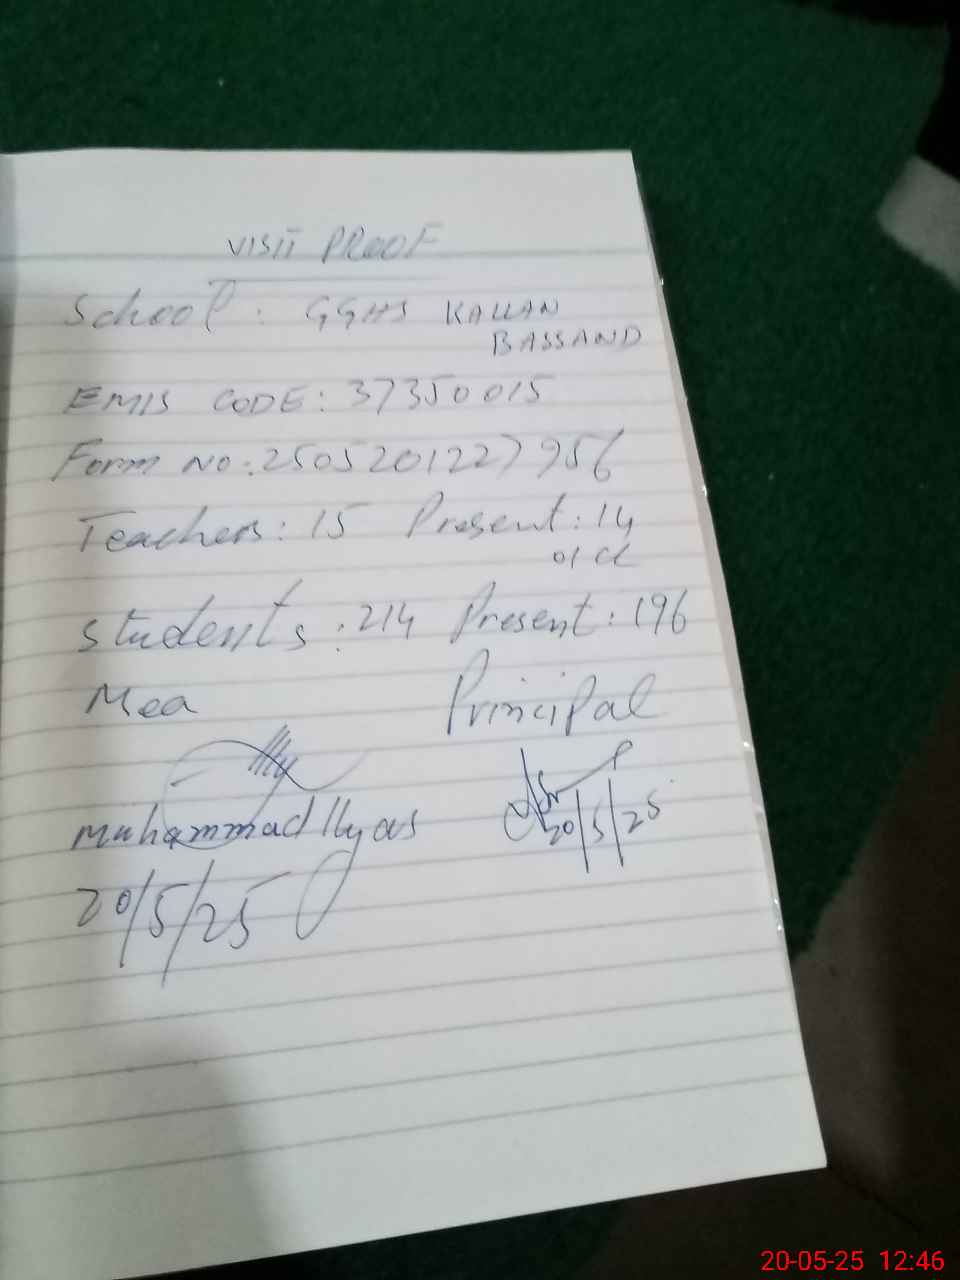 VISIT PROOF
School: GGHS KALLAN
BASSAND
EMIS CODE: 37350015
Form No: 2505201227956
Teachers: 15 Present: 14
01 CL
Students: 214 Present: 196
Mea Principal
Muhammad Ilyas
20/5/25
20/5/25
20-05-25 12:46